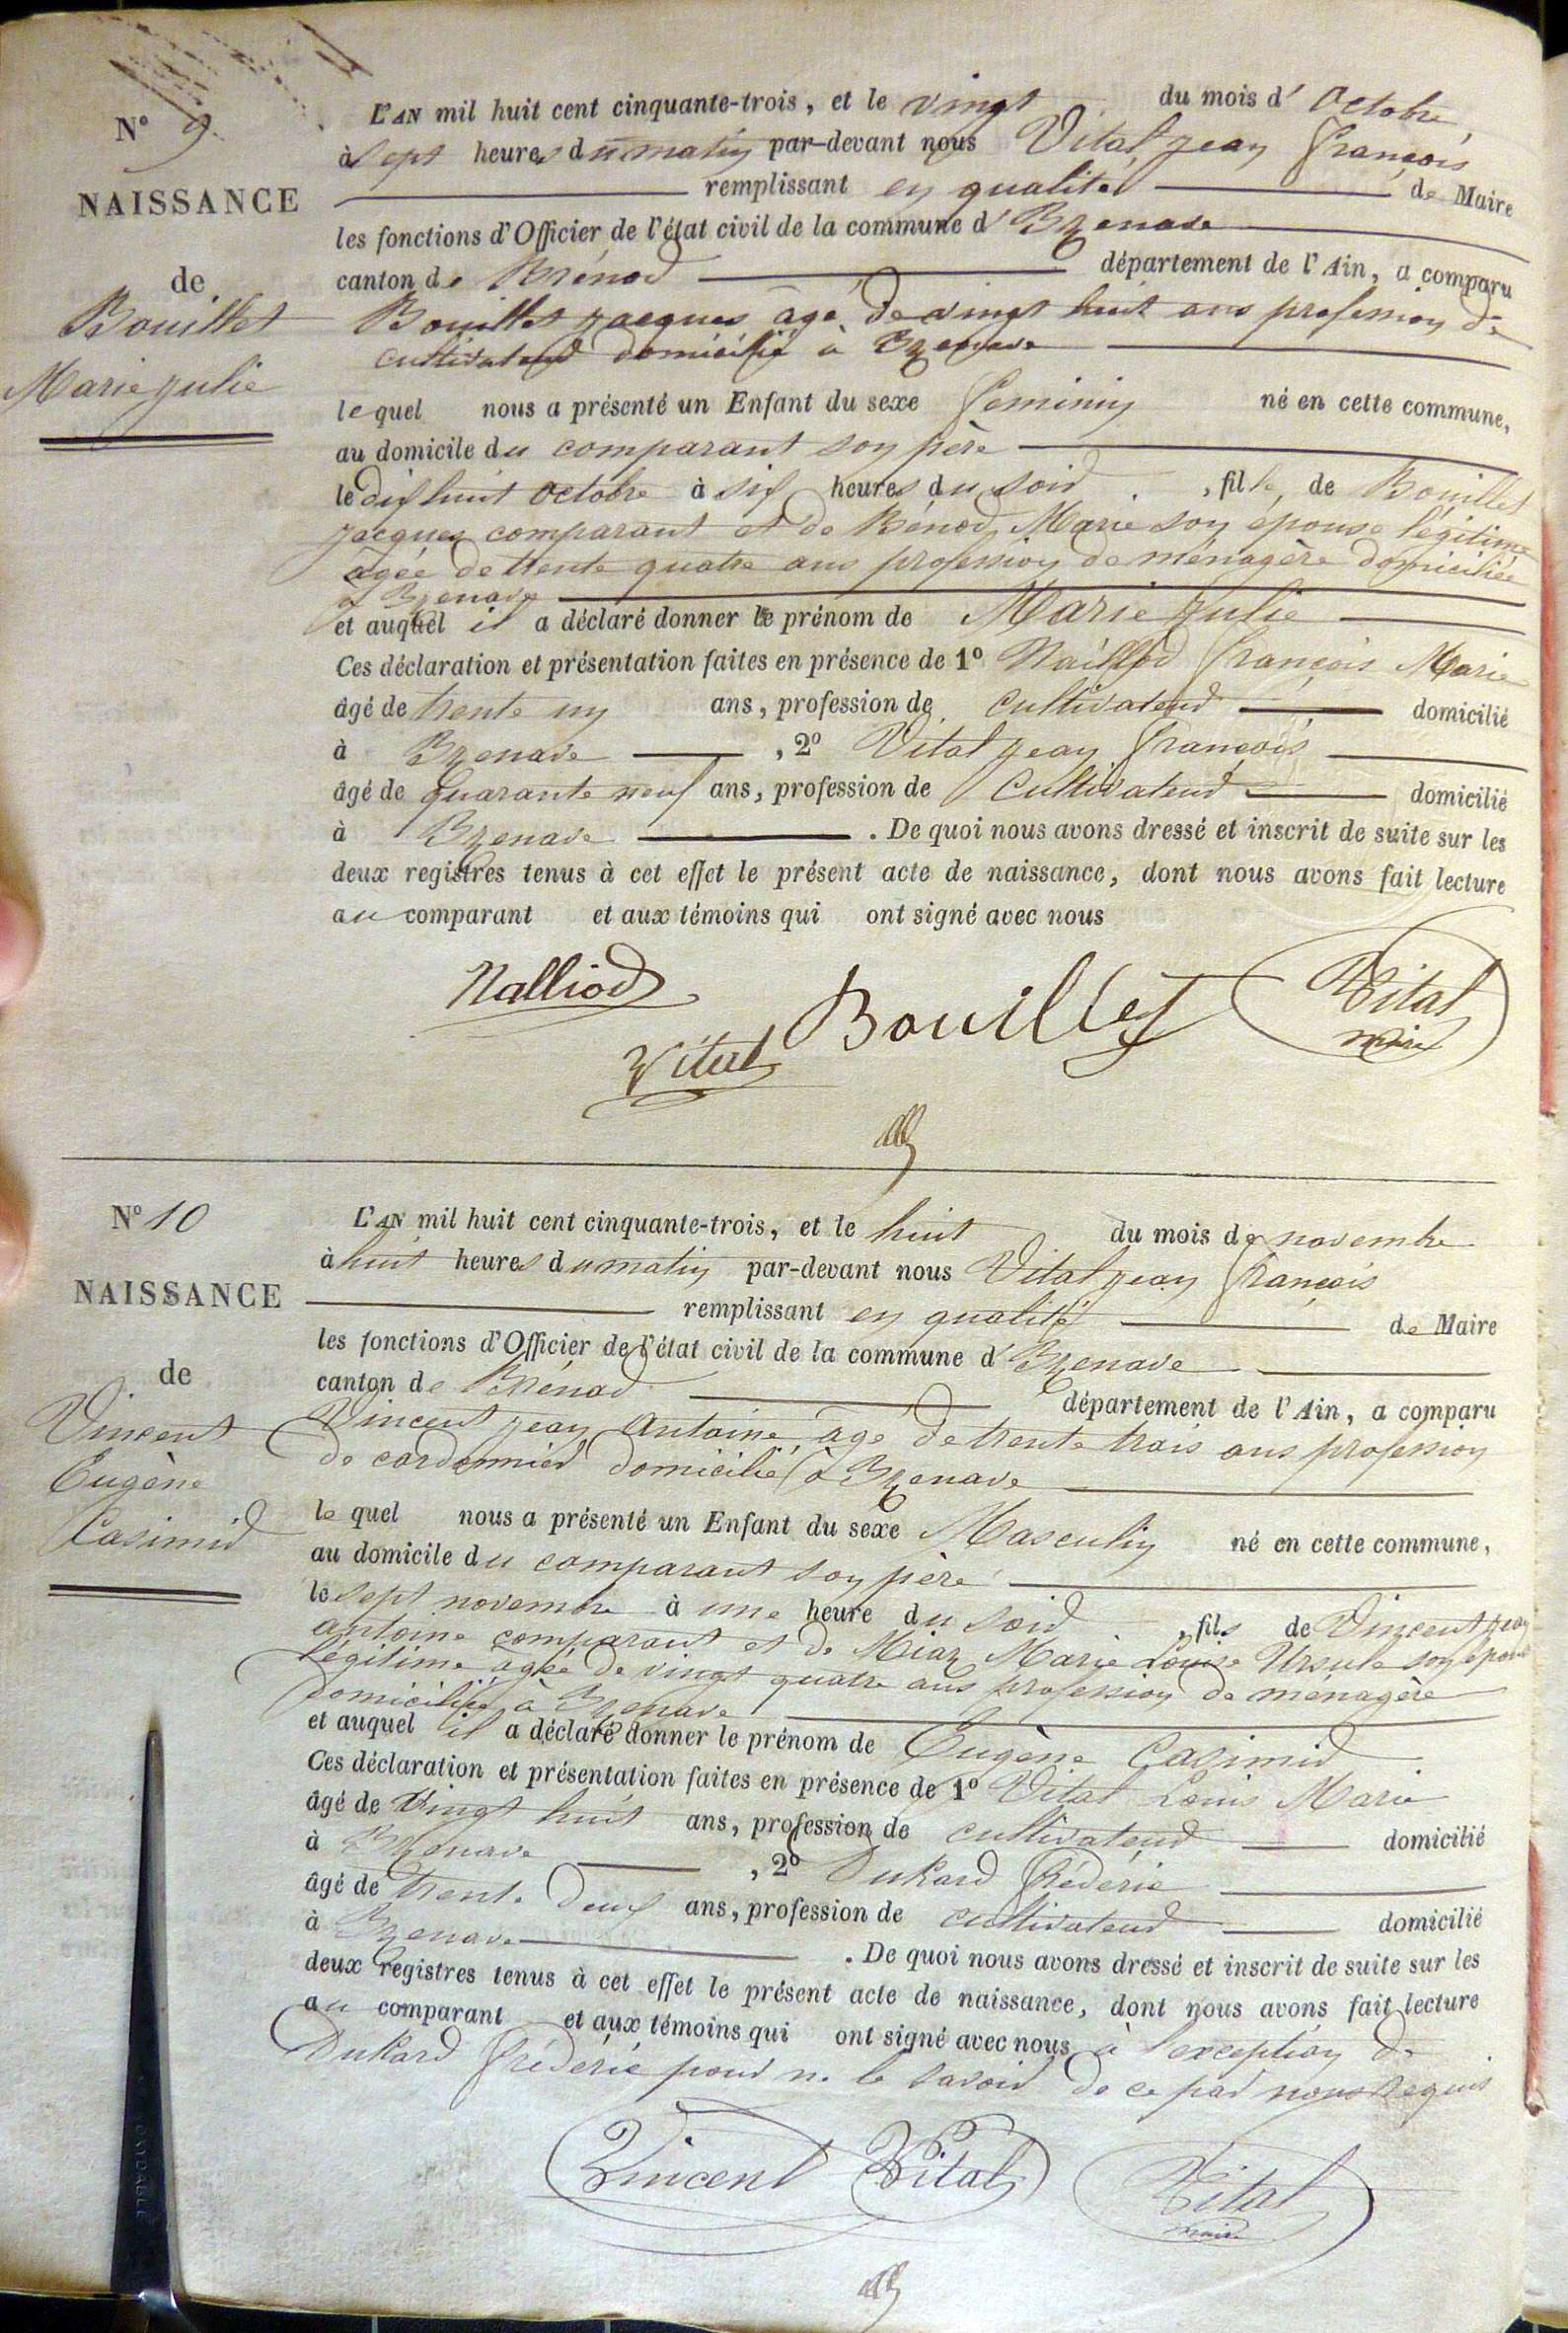 N° 9
NAISSANCE
de
Bouillet
Marie Julie
L'AN mil huit cent cinquante-trois, et le vingt du mois d' Octobre,
à sept heures du matin par-devant nous Vital Jean François
remplissant en qualité de Maire
les fonctions d'Officier de l'état civil de la commune d' Izenave
canton de Brénod département de l'Ain, a comparu
Bouillet Jacques âgé de vingt huit ans profession de
cultivateur domicilié à Izenave
lequel nous a présenté un Enfant du sexe feminin né en cette commune,
au domicile du comparant son père
le dix huit Octobre à six heures du soir, fille de Bouillet
Jacques comparant et de Bénod Marie son épouse légitime
âgée de trente quatre ans profession de ménagère domiciliée
à Izenave
et auquel il a déclaré donner le prénom de Marie Julie
Ces déclaration et présentation faites en présence de 1° Nallliod François Marie
âgé de trente un ans, profession de cultivateur domicilié
à Izenave, 2° Vital Jean François
âgé de quarante neuf ans, profession de Cultivateur domicilié
à Izenave. De quoi nous avons dressé et inscrit de suite sur les
deux registres tenus à cet effet le présent acte de naissance, dont nous avons fait lecture
au comparant et aux témoins qui ont signé avec nous
Nalliod
Vital
Bouillet
Vital
maire
N° 10
NAISSANCE
de
Vincent
Eugène
Casimir
L'AN mil huit cent cinquante-trois, et le huit du mois de novembre
à huit heures du matin par-devant nous Vital Jean François
remplissant en qualité de Maire
les fonctions d'Officier de l'état civil de la commune d' Izenave
canton de Brénod département de l'Ain, a comparu
Vincent Jean Antoine âgé de trente trois ans profession
de cordonnier domicilié à Izenave
le quel nous a présenté un Enfant du sexe Masculin né en cette commune,
au domicile du comparant son père
le sept novembre à une heure du soir, fils de Vincent Jean
antoine comparant et de Miaz Marie Louise Ursule son épouse
légitime âgée de vingt quatre ans profession de ménagère
domiciliée à Izenave
et auquel il a déclaré donner le prénom de Eugène Casimir
Ces déclaration et présentation faites en présence de 1° Vital Louis Marie
âgé de vingt huit ans, profession de cultivateur domicilié
à Izenave, 2° Dukard Fréderic
âgé de trente deux ans, profession de cultivateur domicilié
à Izenave. De quoi nous avons dressé et inscrit de suite sur les
deux registres tenus à cet effet le présent acte de naissance, dont nous avons fait lecture
au comparant et aux témoins qui ont signé avec nous à l'exception de
Dukard Fréderic pour ne le savoir de ce par nous requis
Vincent
Vital
Vital
maire